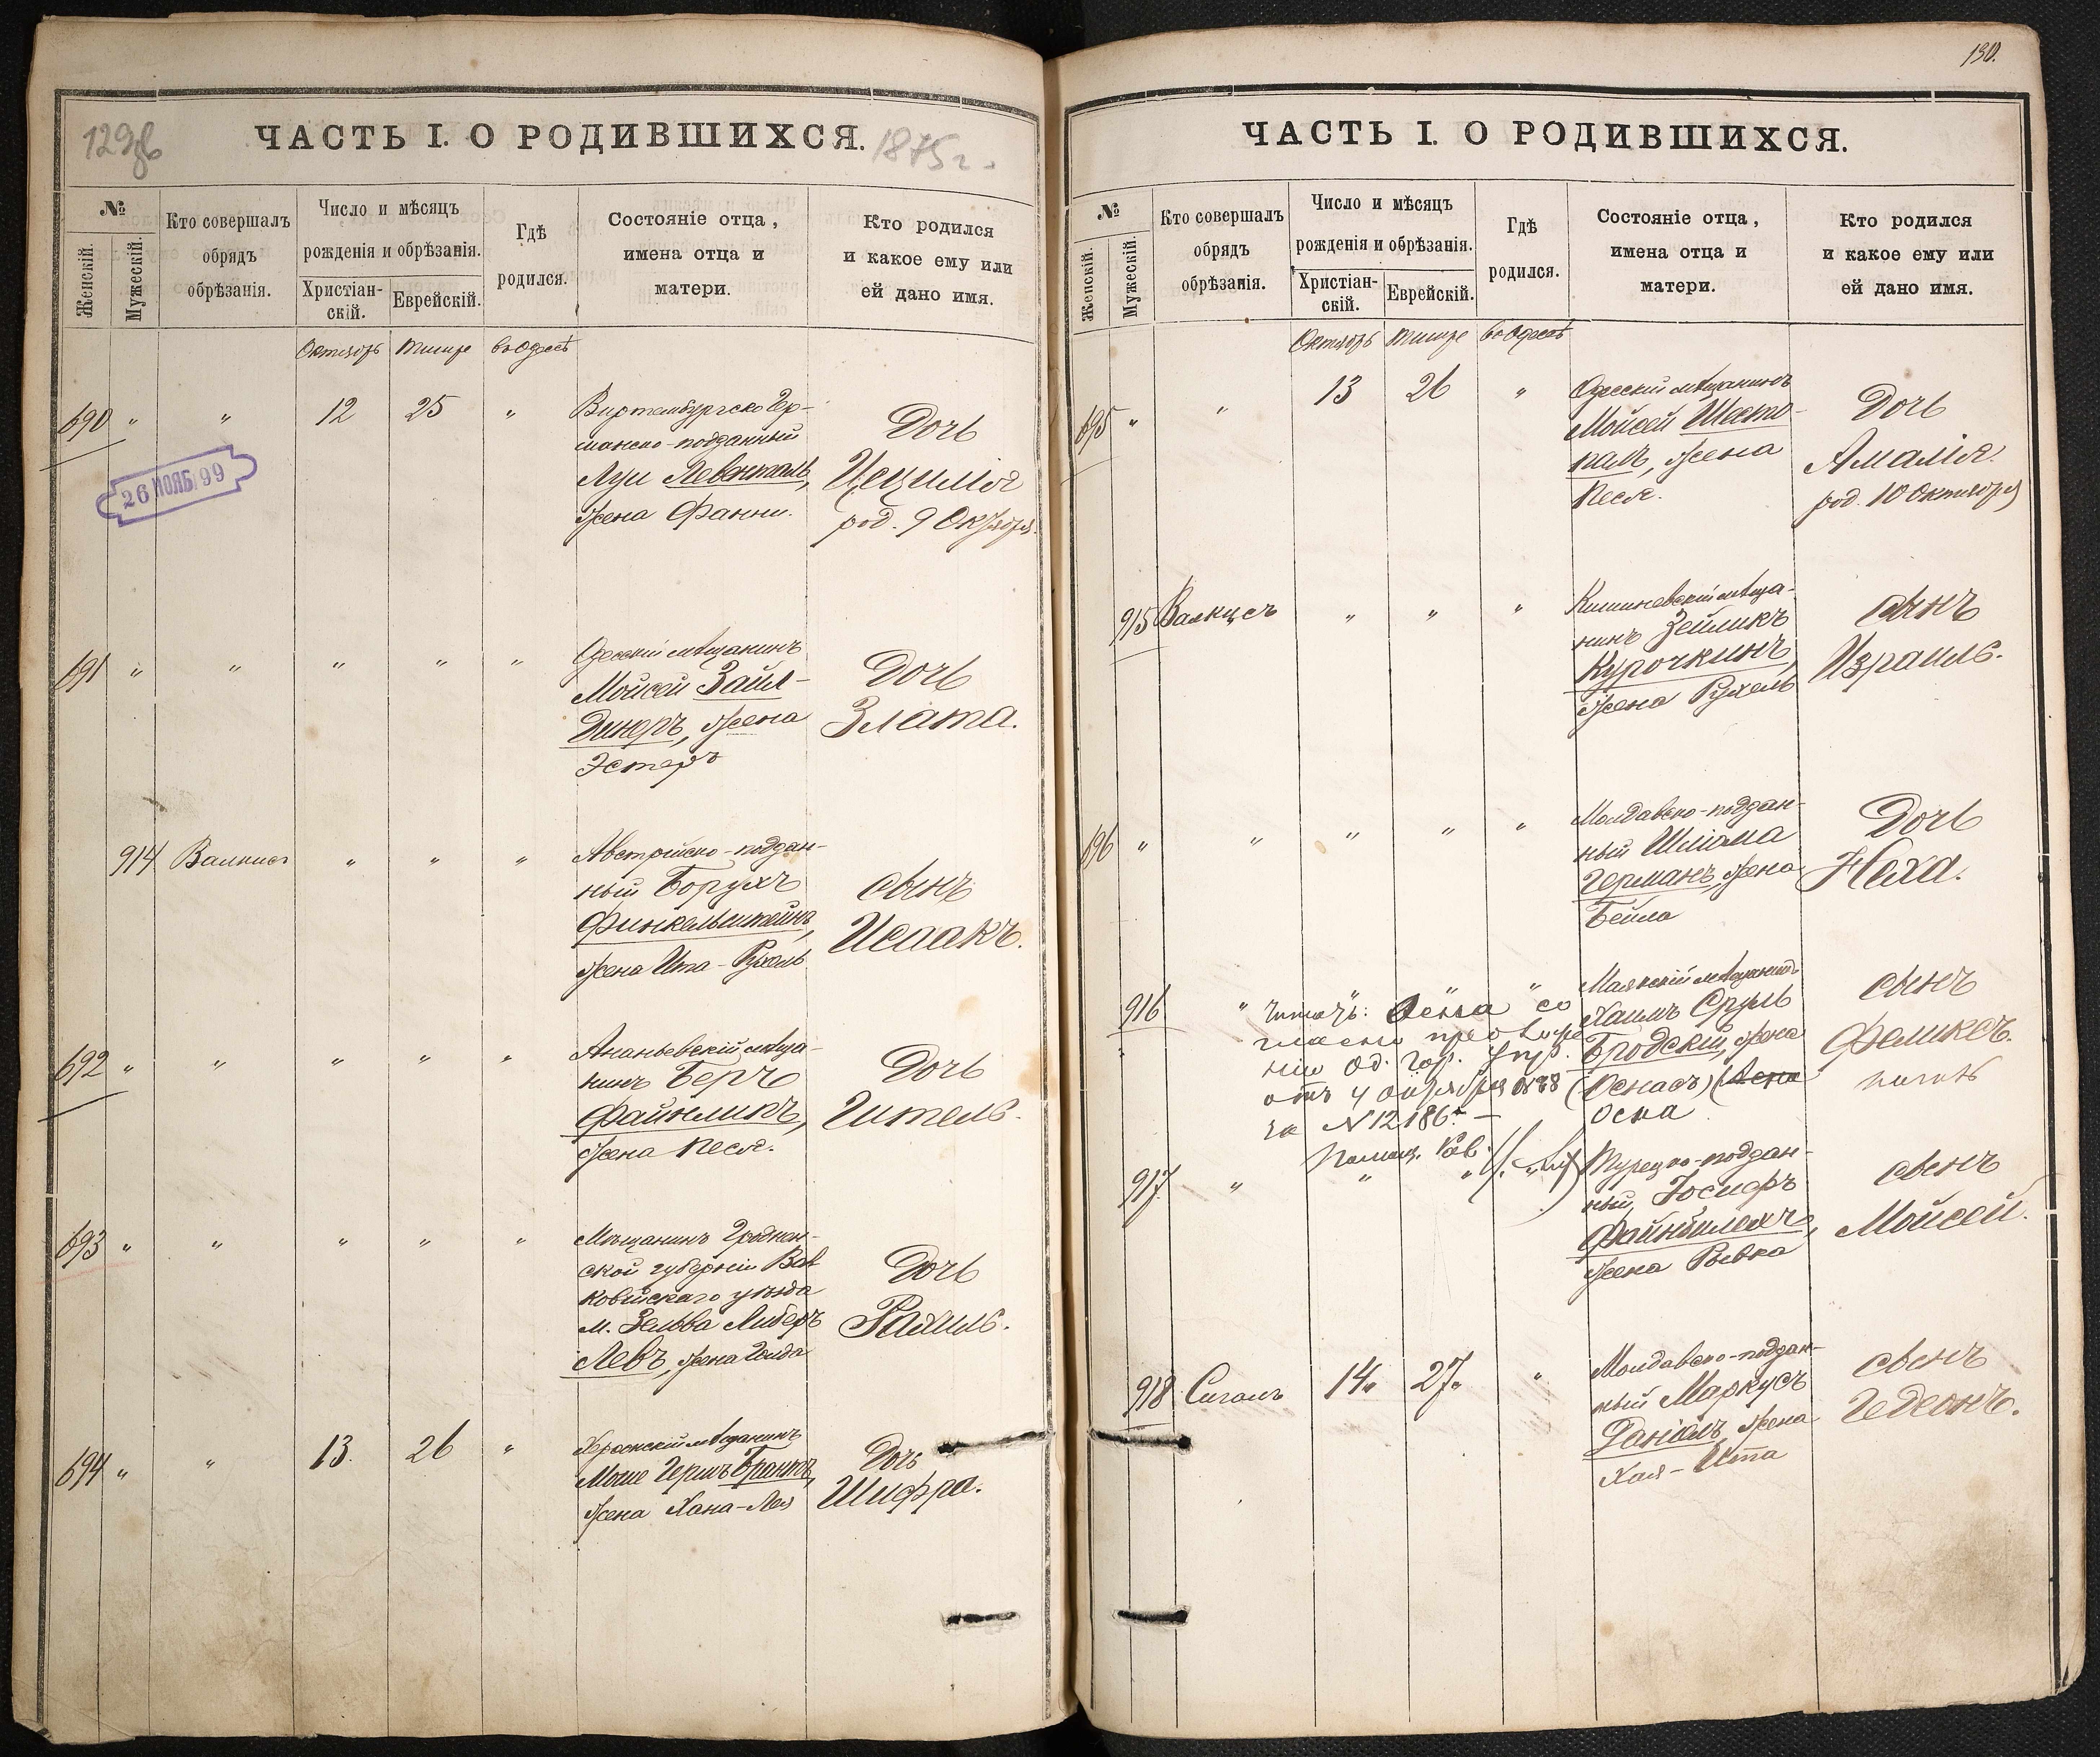 129об
ЧАСТЬ I. О РОДИВШИХСЯ.
1875 г.
№
Женскій.
Мужескій.
Кто совершалъ
обрядъ
обрѣзанія.
Число и мѣсяцъ
рожденія и обрѣзанія.
Христіан-
скій.
Еврейскій.
Гдѣ
родился.
Состояніе отца,
имена отца и
матери.
Кто родился
и какое ему или
ей дано имя.
Октябрь Тишре въ Одессѣ
690 " " 12 25 "
Виртембургско Гер-
манско-подданный
Луи Левенталь,
жена Фанни.
Дочь
Цецилія
род. 9 Октября.
26 НОЯБ 99
691 " " " " "
Одесскій мѣщанинъ
Мойсей Зайл-
динеръ, жена
Эстеръ
Дочь
Злата.
914 Валкисъ " " "
Австрійско-поддан-
ный Борухъ
Финкельштейнъ,
жена Ита-Рухель
сынъ
Исаакъ.
692 " " " " "
Ананьевскій мѣща-
нинъ Беръ
Файнликъ,
жена Песя.
Дочь
Гитель.
693 " " " " "
Мѣщанинъ Гроднен-
ской губерніи Вол
ковийскаго уѣзда
м. Зельва Либеръ
Левъ, жена Голда
Дочь
Рахиль.
694 " " 13. 26 "
Херсонскій мѣщанинъ
Моше Гершъ
жена Хана-Лея
Дочь
Шифра.
130.
ЧАСТЬ I. О РОДИВШИХСЯ.
№
Женскій.
Мужескій.
Кто совершалъ
обрядъ
обрѣзанія.
Число и мѣсяцъ
рожденія и обрѣзанія.
Христіан-
скій.
Еврейскій.
Гдѣ
родился.
Состояніе отца,
имена отца и
матери.
Кто родился
и какое ему или
ей дано имя.
Октябрь Тишре въ Одессѣ
695 " " 13 26 "
Одесскій мѣщанинъ
Мойсей Шесто-
палъ, жена
Песя.
Дочь
Амалія.
род. 10 Октября
915 Валкусъ " " "
Кишиневскій мѣща-
нинъ Зейликъ
Курочкинъ,
жена Рухель
сынъ
Израиль.
696 " " " " "
Молдавско-поддан-
ный Шлiома
Германъ, жена
Бейла
Дочь
Неха.
916 " " " "
Маякскій мѣщанинъ
Хаимъ Сруль
Бродскій, жена
(Оснасъ)
Осна
сынъ
Феликсъ.
читать: Осна со
гласно предложе
нію Од. Гор. Упр.
отъ 4 за № 12186. —
Помощ. Рав.
917 " " " "
Турецко-поддан-
ный, Іосифъ
Файнбилехъ,
жена Ривка
сынъ
Мойсей.
918 Сигалъ 14" 27" "
Молдавско-поддан-
ный Маркусъ
Даніелъ, жена
Хая-Итта
сынъ
Гедеонъ.